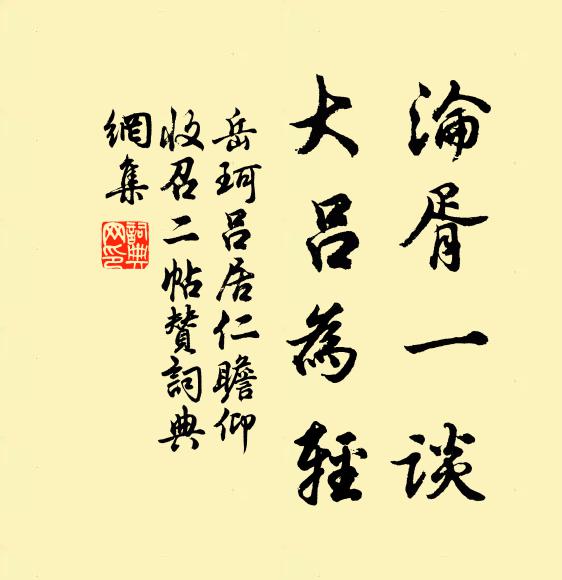 淪胥一談
大呂為輕
岳珂呂居仁瞻仰
收召二帖贊詞典
網集
詞典
网印